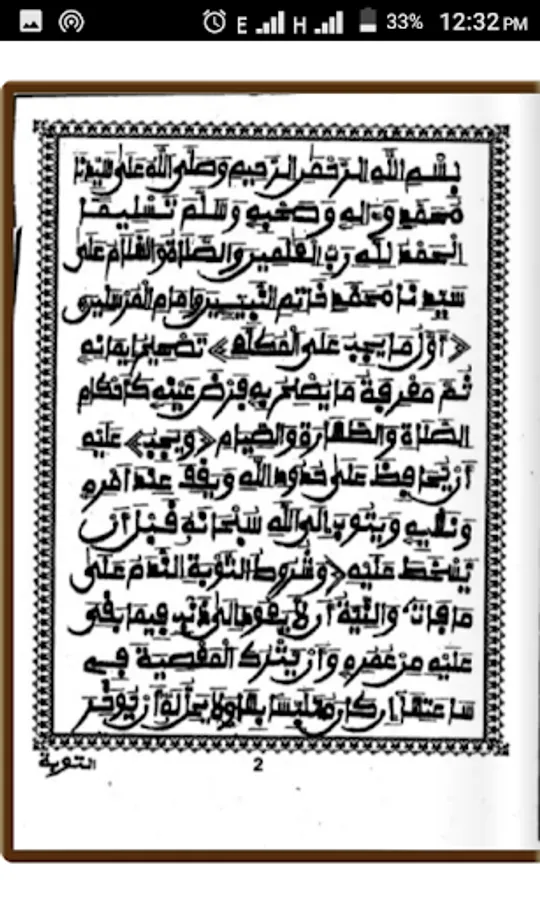 E H 33% 12:32 PM
بِسْمِ اللَّهِ الرَّحْمَٰنِ الرَّحِيمِ وَصَلَّى اللَّهُ عَلَى سَيِّدِنَا
مُحَمَّدٍ وَءَالِهِ وَصَحْبِهِ وَسَلَّمَ تَسْلِيمًا
الْحَمْدُ لِلَّهِ رَبِّ الْعَٰلَمِينَ وَالصَّلَاةُ وَالسَّلَامُ عَلَى
سَيِّدِنَا مُحَمَّدٍ خَاتِمِ النَّبِيِّينَ وَإِمَامِ الْمُرْسَلِينَ
﴿أَوَّلُ مَا يَجِبُ عَلَى الْمُكَلَّفِ﴾ تَصْحِيحُ إِيمَانِهِ
ثُمَّ مَعْرِفَةُ مَا يُصْلِحُ بِهِ فَرْضَ عَيْنِهِ كَأَحْكَامِ
الصَّلَاةِ وَالطَّهَارَةِ وَالصِّيَامِ ﴿وَيَجِبُ﴾ عَلَيْهِ
أَنْ يُحَافِظَ عَلَى حُدُودِ اللَّهِ وَيَقِفَ عِنْدَ أَمْرِهِ
وَنَهْيِهِ وَيَتُوبَ إِلَى اللَّهِ سُبْحَانَهُ قَبْلَ أَنْ
يَسْخَطَ عَلَيْهِ ﴿وَشُرُوطُ التَّوْبَةِ النَّدَمُ عَلَى
مَا فَاتَ وَالنِّيَّةُ أَنْ لَا يَعُودَ إِلَى ذَنْبٍ فِيمَا بَقِيَ
عَلَيْهِ مِنْ عُمُرِهِ وَأَنْ يَتْرُكَ الْمَعْصِيَةَ فِي
سَاعَتِهَا إِنْ كَانَ مُتَلَبِّسًا بِهَا وَلَا يَحِلُّ لَهُ أَنْ يُؤَخِّرَ
التوبة
2